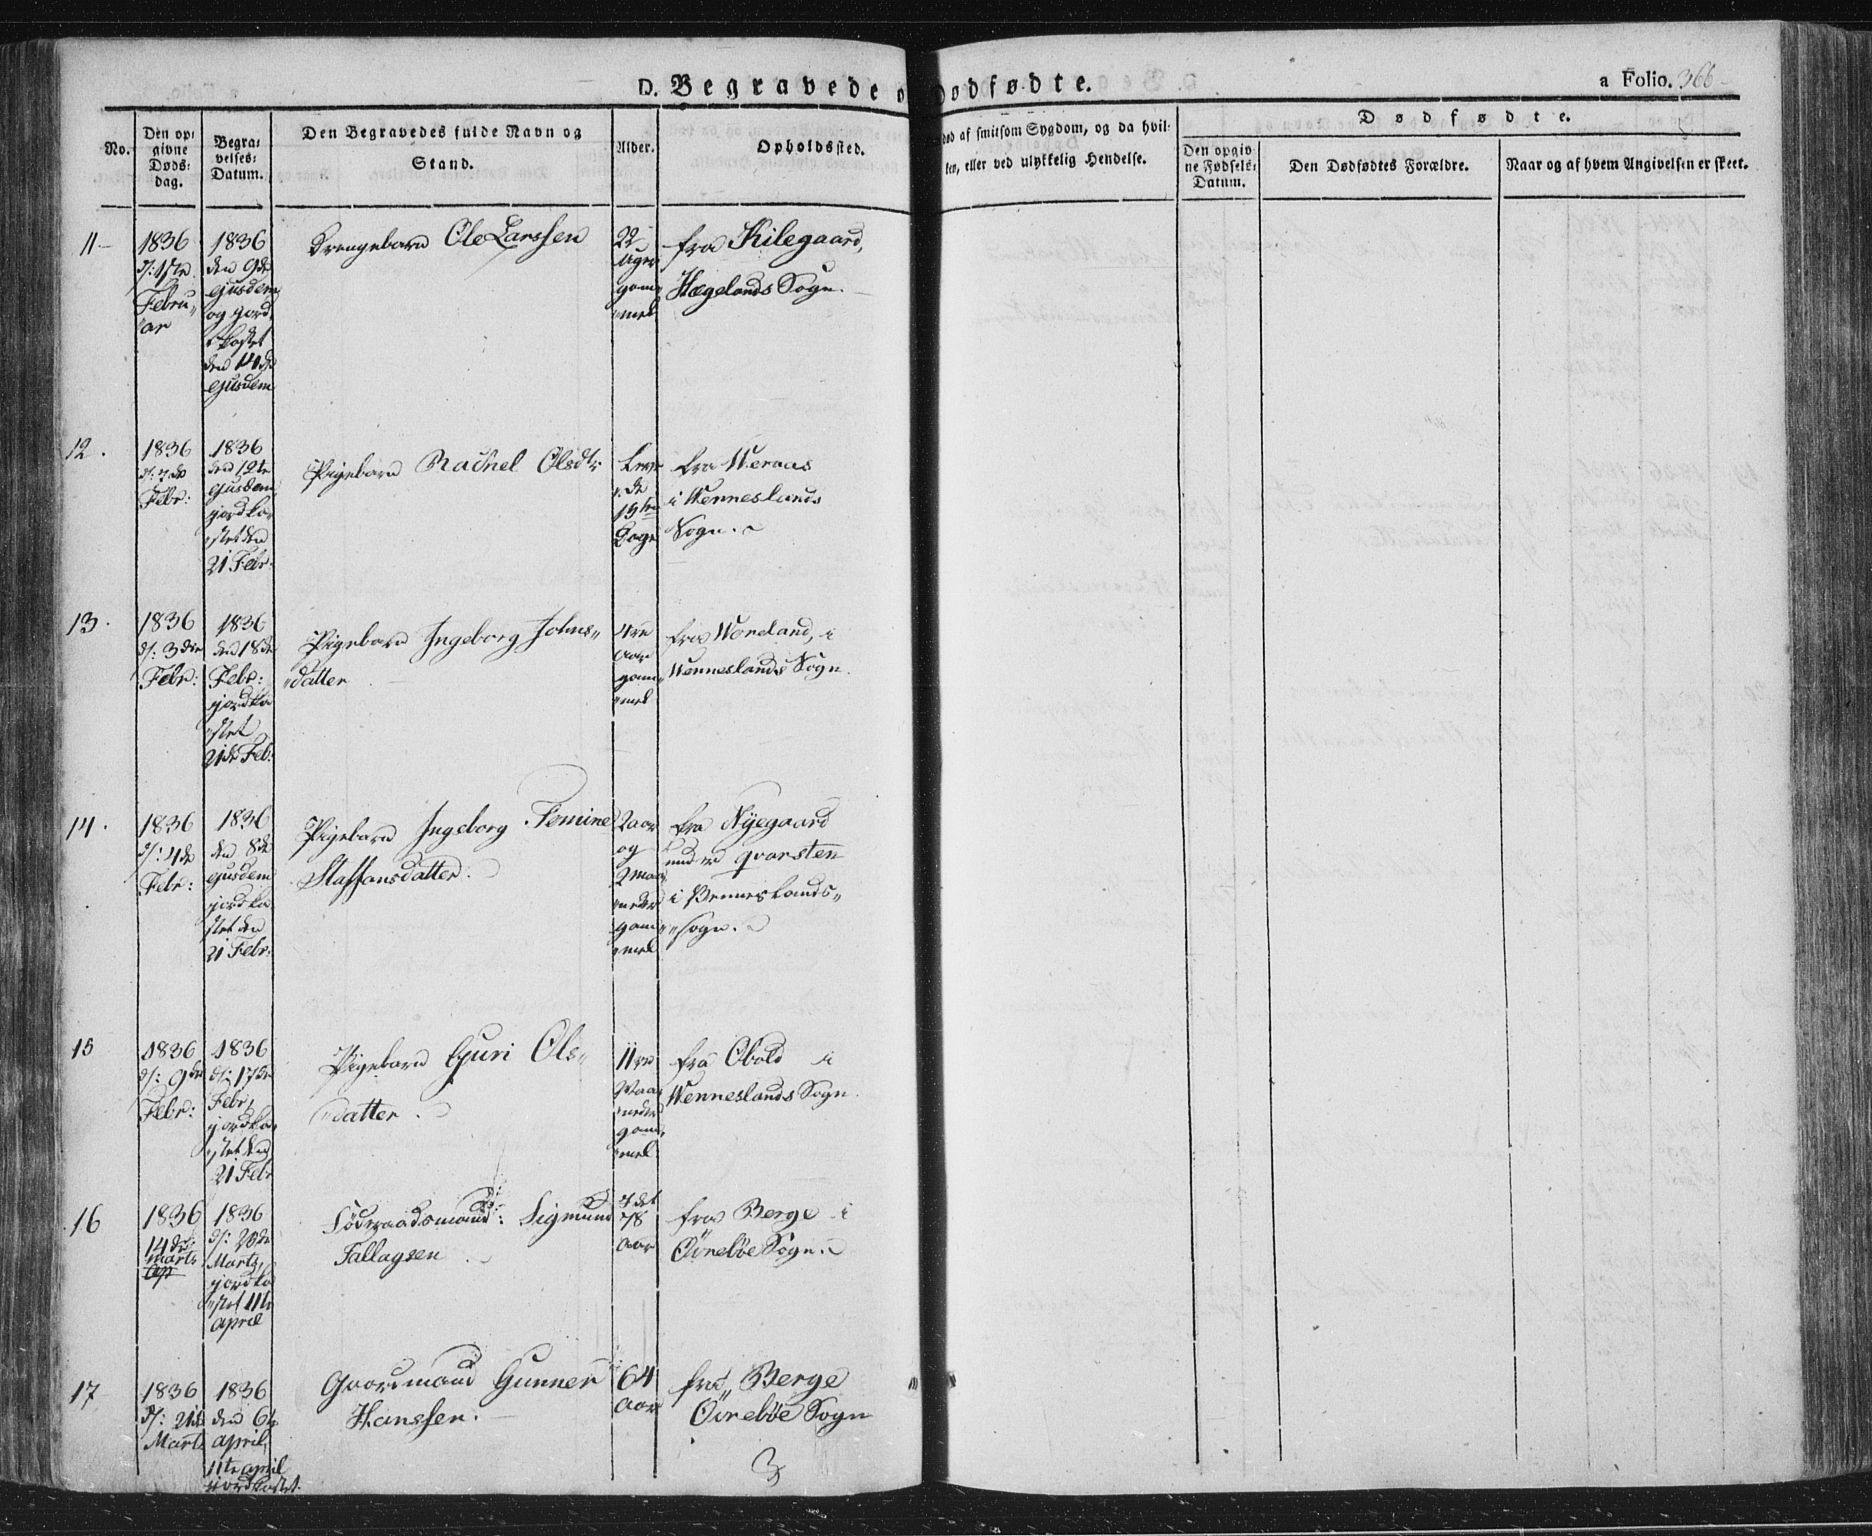 D. Begravede o Dødfødte.
a Folio. 366
No.
Den op-
givne
Døds-
dag.
Begra-
velses-
Datum.
Den Begravedes fulde Navn og
Stand.
Alder.
Opholdssted.
død af smitsom Sygdom, og da hvil-
ken, eller ved ulykkelig Hendelse.
Dødfødte.
Den opgiv-
ne Fødsels-
Datum.
Den Dødfødtes Forældre.
Naar og af hvem Angivelsen er skeet.
11
1836
Febru-
ar
1836
den 9de
ejusdem
og jord-
kastet
den 14de
ejusdem
Drengebarn Ole Larssen
22
Uger
gam-
mel
fra Kilegaard,
Hægelands Sogn.
12.
1836
Febr:
1836
den 12te
ejusdem
jordka-
stet den
21 Febr:
Pigebarn Rachel Olsdtr
Dage
fra
i Wenneslands
Sogn.
13.
1836
d: 3die
Febr:
1836
den 18de
Febr:
jordka
stet
21de Feb:
Pigebarn Ingeborg Johns-
datter
4re
Aar
gam-
mel
fra Woreland, i
Wenneslands Sogn.
14.
1836
d: 4de
Febr:
1836
den 8de
ejusdem
jordka
stet den
21 Febr:
Pigebarn Ingeborg Temine
Staffansdatter.
2 aar
og
2 maa
neder
gam-
mel
fra Nyegaard
under qvarsten
i Venneslands-
sogn.
15
1836
d: 9de
Febr:
1836
d: 17de
Febr,
jordka-
stet den
21 Febr
Pigebarn Guri Ols-
datter.
11ve
Maa
neder
gam-
mel
fra Obold i
Wenneslands Sogn.
16
1836
14de
Marts
1836
d: 28de
Marts,
jordka
stet 11te
April
Föderaadsmand: Sigmund
Tallagsen
78
aar
fra Berge i
Övrebøe Sogn.
17
1836
d: 21de
Marts
1836
den 6te
april,
11te april
jordkastet.
Gaardmand Gunner
Hanssen.
64
aar
fra Berge
Övrebøe Sogn